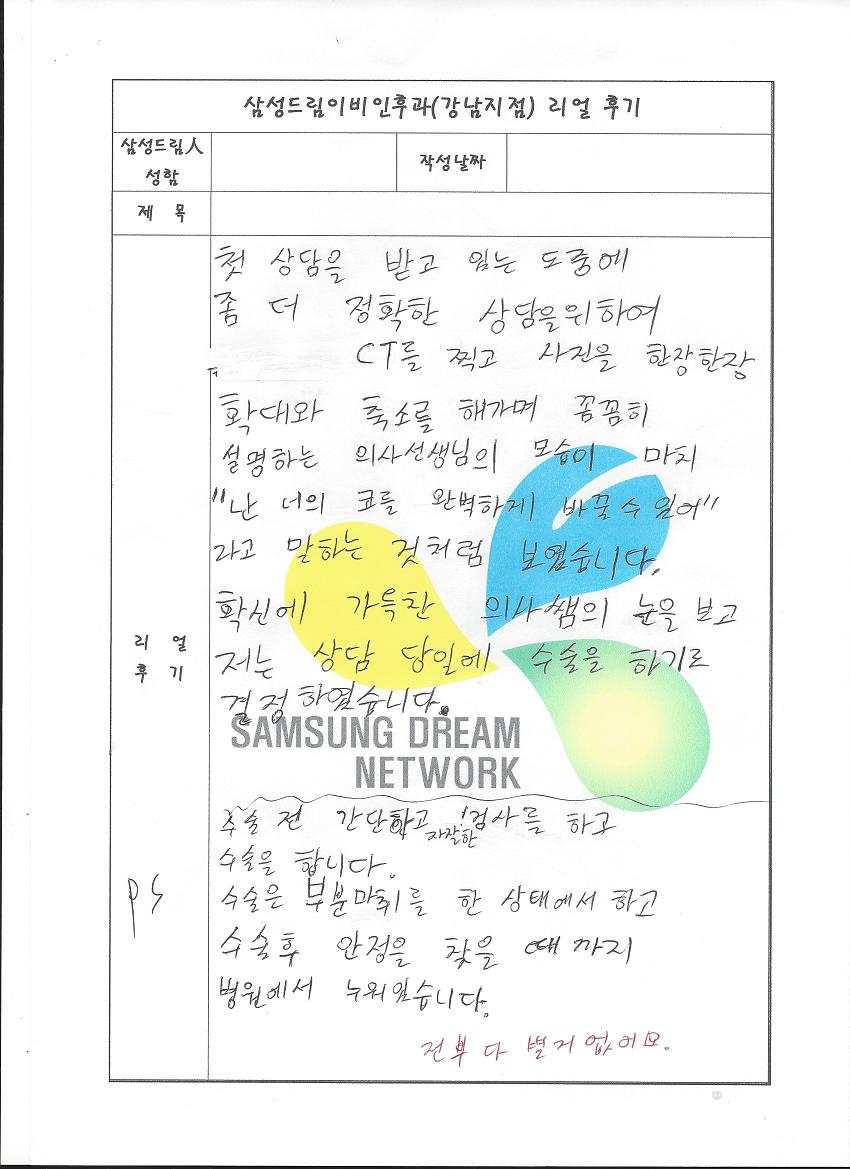 삼성드림이비인후과(강남지점) 리얼 후기
삼성드림人
성함
작성날짜
제 목
첫 상담을 받고 있는 도중에
좀 더 정확한 상담을위하여
CT를 찍고 사진을 한장한장
확대와 축소를 해가며 꼼꼼히
설명하는 의사선생님의 모습이 마치
"난 너의 코를 완벽하게 바꿀수 있어"
라고 말하는 것처럼 보였습니다.
확신에 가득찬 의사쌤의 눈을 보고
저는 상담 당일에 수술을 하기로
결정하였습니다.
리 얼
후 기
SAMSUNG DREAM
NETWORK
수술 전 간단하고 자잘한 검사를 하고
수술을 합니다.
수술은 부분마취를 한 상태에서 하고
수술후 안정을 찾을 때 까지
병원에서 누워있습니다.
PS
전부 다 별거 없어요.